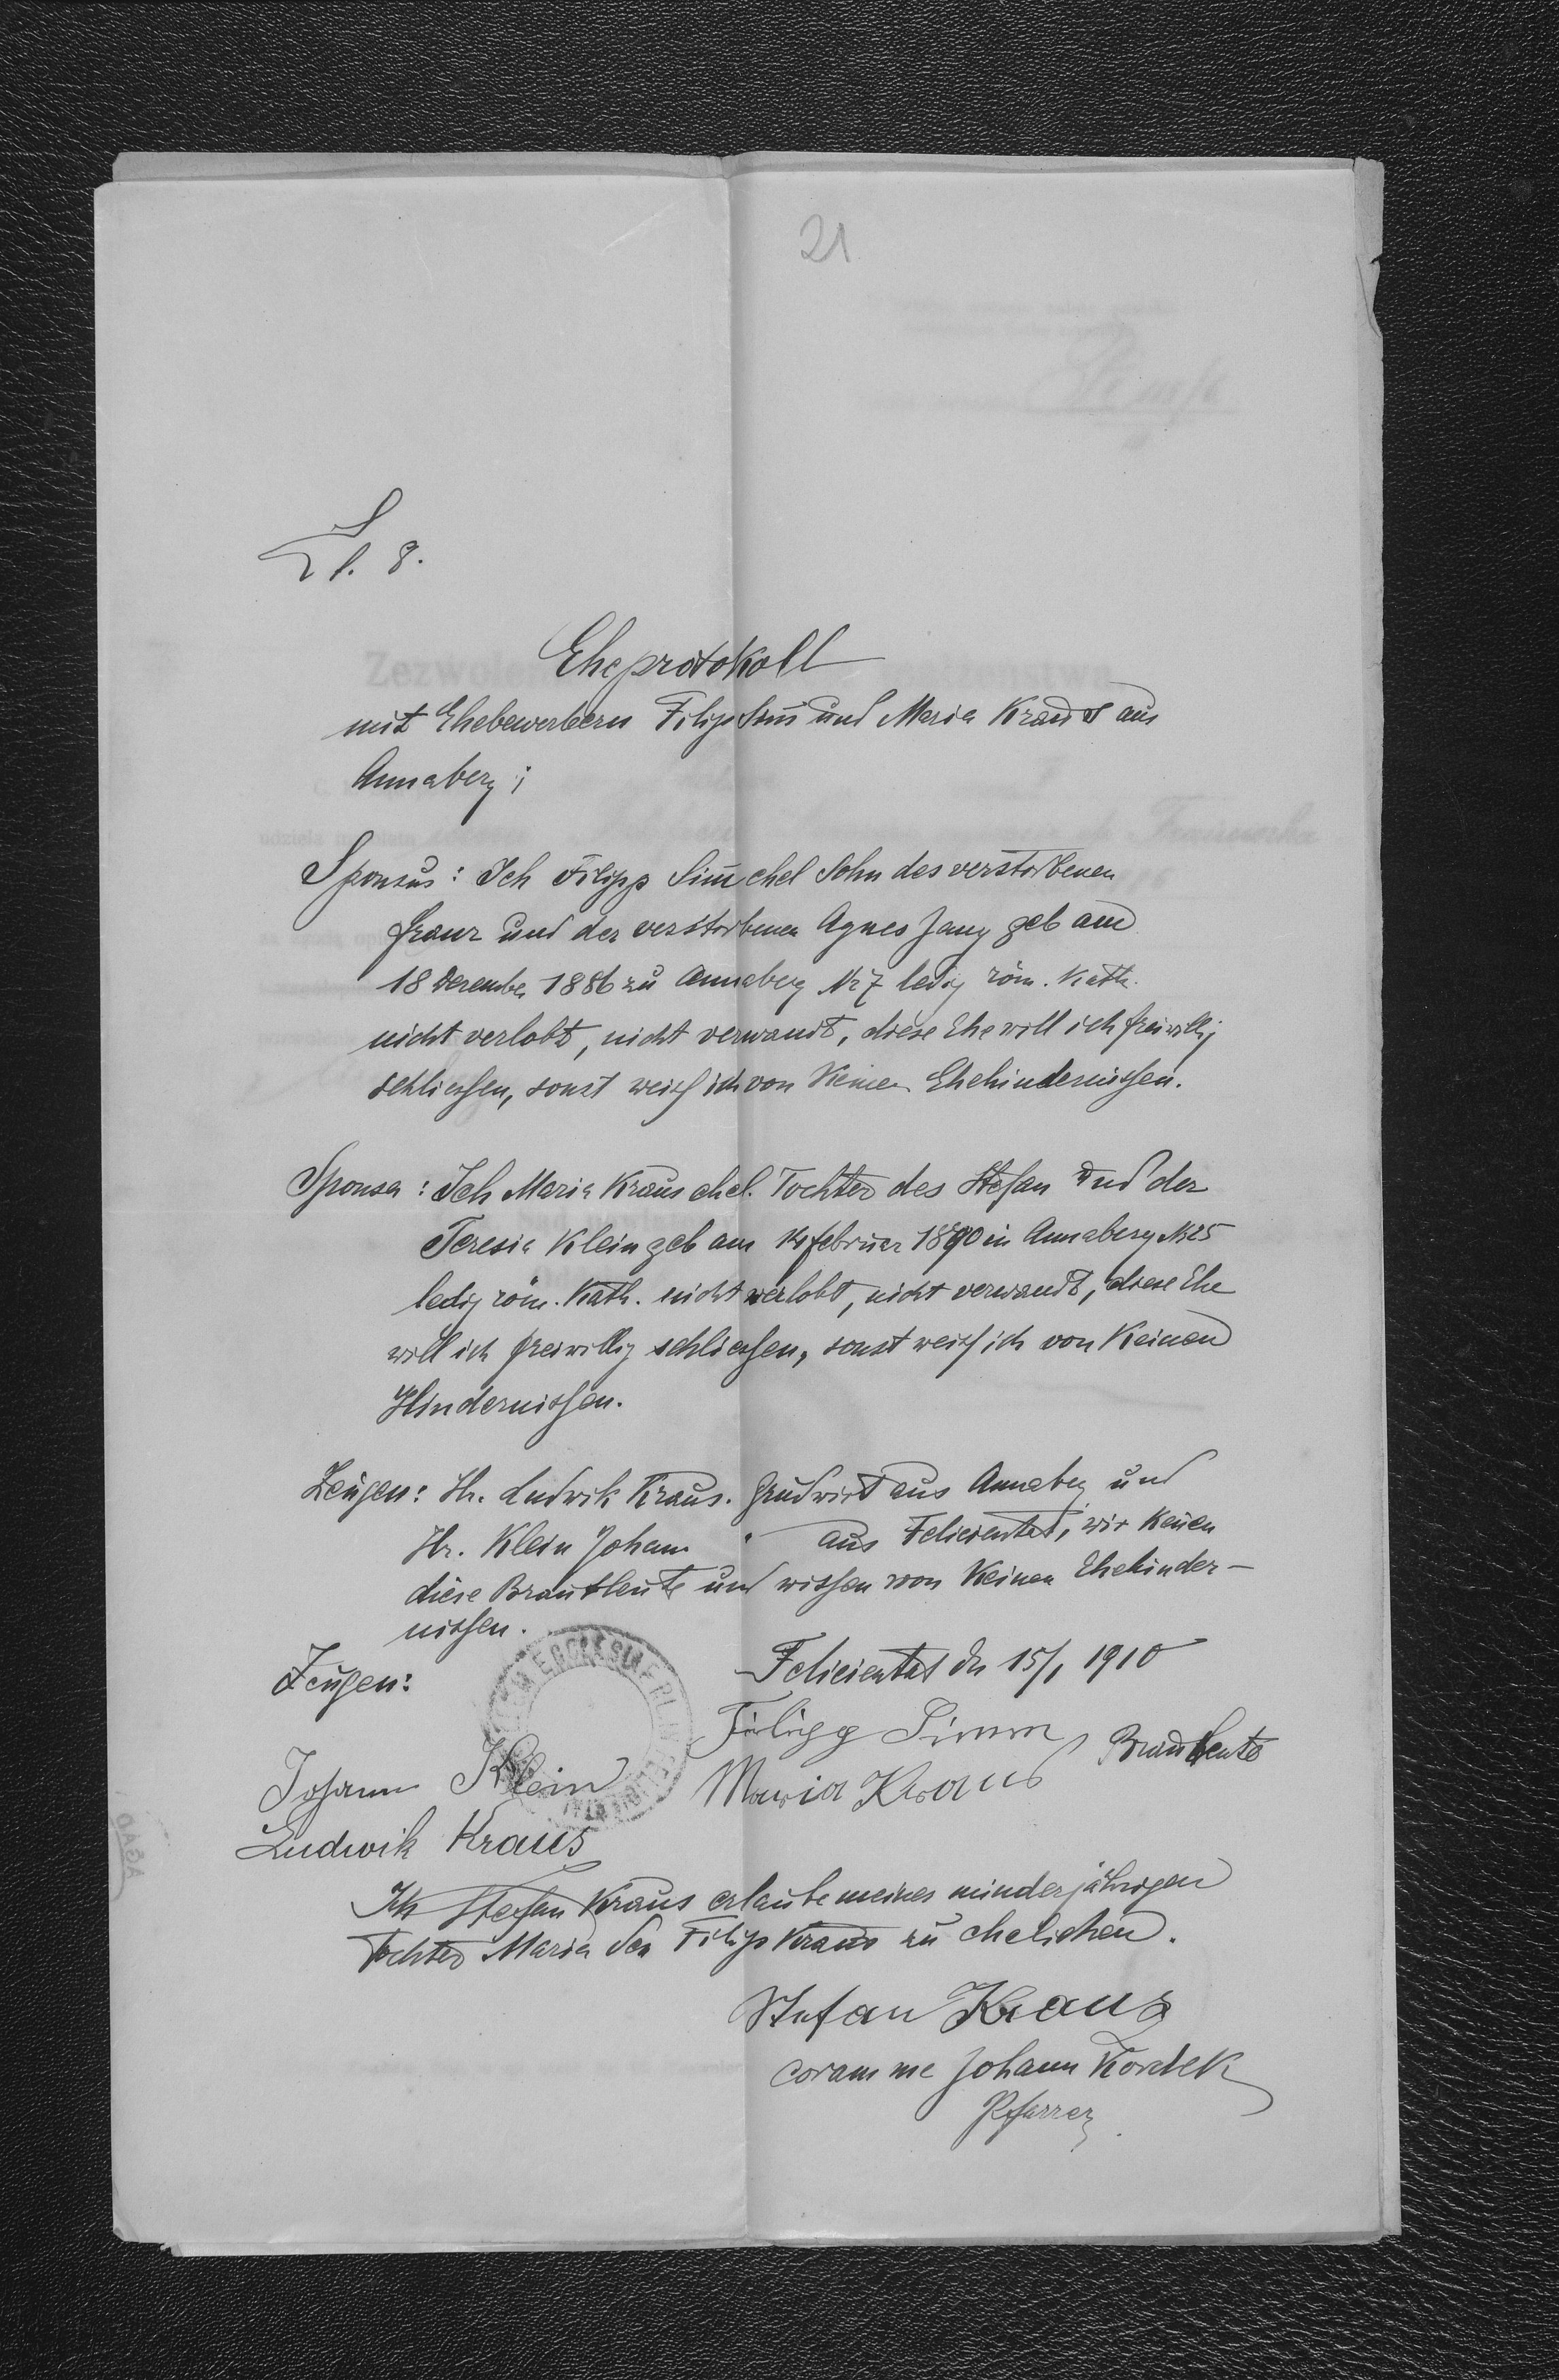 21
L. 8.
Eheprotokoll
mit Ehebewerbern Filip Sim̄ und Maria Kraus aus
Annaberg;
Sponsus: Ich Filipp Sim̄ ehel Sohn des verstorbenen
Franz und der verstorbenen Agnes Jany geb am
18 Dezember 1886 zu Annaberg Nr 7 ledig röm. Kath.
nicht verlobt, nicht verwandt, diese Ehe will ich freiwillig
schliessen, sonst weiss ich von Keinen Ehehindernissen.
Sponsa: Ich Maria Kraus ehel. Tochter des Stefan und der
Teresia Klein geb am 14 Februar 1890 in Annaberg N 25
ledig röm. Kath. nicht verlobt, nicht verwandt, diese Ehe
will ich freiwillig schliessen, sonst weiss ich von Keinen
Hindernissen.
Zeugen: Hr. Ludwik Kraus. Grundwirt aus Annaberg und
Hr. Klein Johann " aus Felicienthal, wir Kenen
diese Brautleute und wissen von Keinen Ehehinder-
nissen.
Zeugen:
Felicienthal den 15/1 1910
Filipp Simm
Brautleute
Johann Klein
Maria Kraus
Ludwik Kraus
Ich Stefan Kraus erlaube meiner minderjährigen
Tochter Maria den Filip Kraus zu ehelichen.
Stefan Kraus
coram me Johann Kordek
Pfarrer